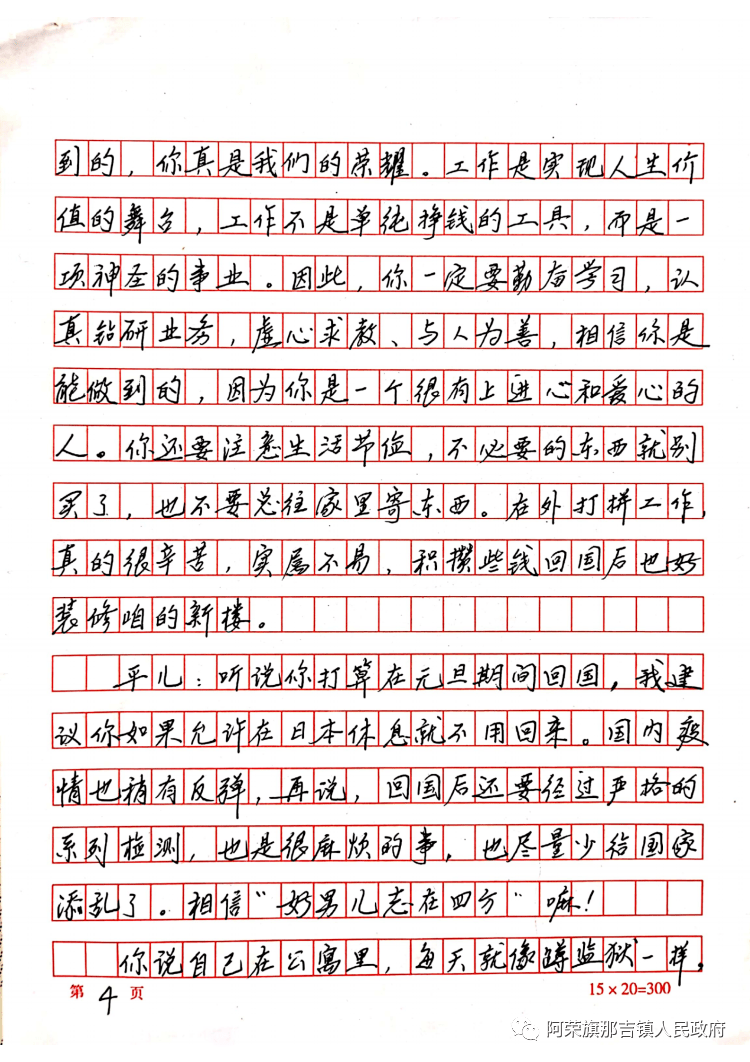 到的，你真是我们的荣耀。工作是实现人生价
值的舞台，工作不是单纯挣钱的工具，而是一
项神圣的事业。因此，你一定要勤奋学习，认
真钻研业务，虚心求教、与人为善，相信你是
能做到的，因为你是一个很有上进心和爱心的
人。你还要注意生活节俭，不必要的东西就别
买了，也不要总往家里寄东西。在外打拼工作，
真的很辛苦，实属不易，积攒些钱回国后也好
装修咱的新楼。
平儿：听说你打算在元旦期间回国，我建
议你如果允许在日本休息就不用回来。国内疫
情也稍有反弹，再说，回国后还要经过严格的
系列检测，也是很麻烦的事，也尽量少给国家
添乱了。相信“好男儿志在四方”嘛！
你说自己在公寓里，每天就像蹲监狱一样，
第4页 15×20=300
阿荣旗那吉镇人民政府